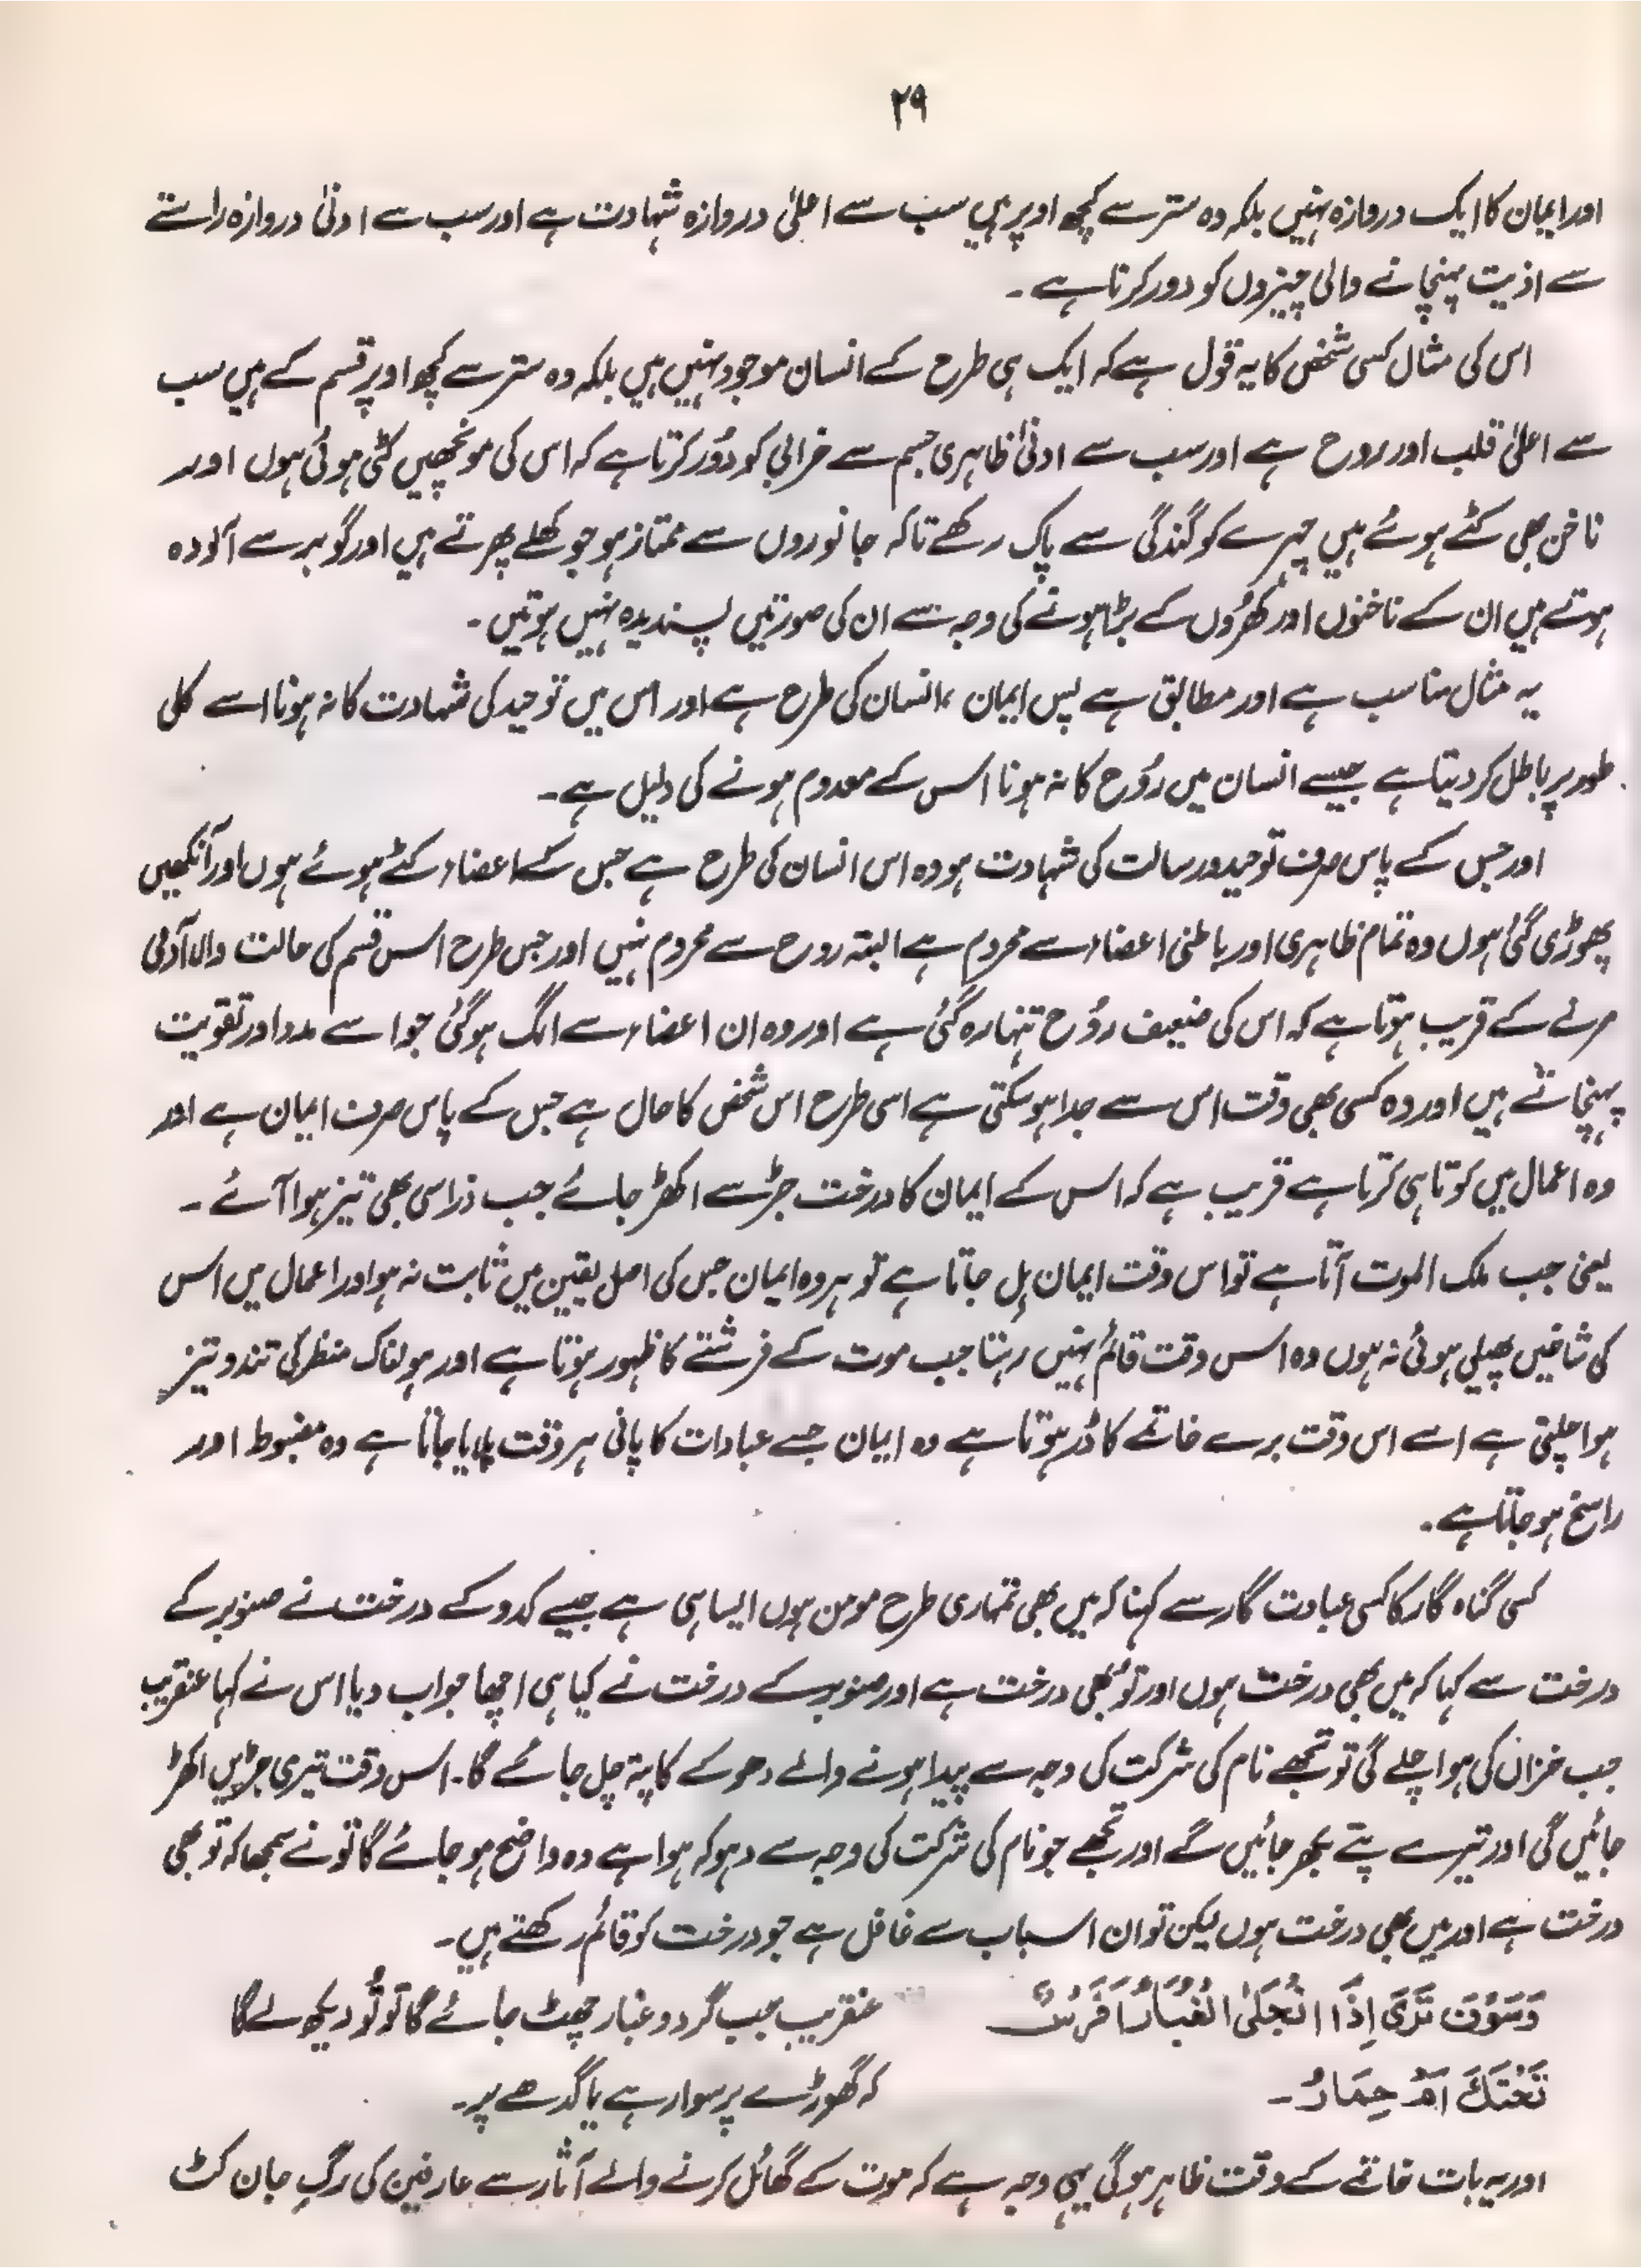 ۲۹
اور ایمان کا ایک دروازہ نہیں بلکہ وہ ستر سے کچھ اوپر ہیں سب سے اعلیٰ دروازہ شہادت ہے اور سب سے ادنیٰ دروازہ راستے
سے اذیت پہنچانے والی چیزوں کو دور کرتا ہے ۔
اس کی مثال کسی شخص کا یہ قول ہے کہ ایک ہی طرح کے انسان موجود نہیں ہیں بلکہ وہ ستر سے کچھ اوپر قسم کے ہیں سب
سے اعلیٰ قلب اور روح ہے اور سب سے ادنیٰ ظاہری جسم سے خرابی کو دُور کرتا ہے کہ اس کی مونچھیں کٹی ہوئی ہوں اور
ناخن بھی کٹے ہوئے ہیں چہرے کو گندگی سے پاک رکھے تاکہ جانوروں سے ممتاز ہو جو کھلے پھرتے ہیں اور گوبر سے آلودہ
ہوتے ہیں ان کے ناخنوں اور کھُروں کے بڑا ہونے کی وجہ سے ان کی صورتیں پسندیدہ نہیں ہوتیں ۔
یہ مثال مناسب ہے اور مطابق ہے پس ایمان ، انسان کی طرح ہے اور اس میں توحید کی شہادت کا نہ ہونا اسے کلی
طور پر باطل کر دیتا ہے جیسے انسان میں رُوح کا نہ ہونا اس کے معدوم ہونے کی دلیل ہے ۔
اور جس کے پاس صرف توحید و رسالت کی شہادت ہو وہ اس انسان کی طرح ہے جس کے اعضاء کٹے ہوئے ہوں اور آنکھیں
پھوڑی گئی ہوں وہ تمام ظاہری اور باطنی اعضاء سے محروم ہے البتہ روح سے محروم نہیں اور جس طرح اس قسم کی حالت والا آدمی
مرنے کے قریب ہوتا ہے کہ اس کی ضعیف روُح تنہا رہ گئی ہے اور وہ ان اعضاء سے الگ ہو گئی جو اسے مدد اور تقویت
پہنچاتے ہیں اور وہ کسی بھی وقت اس سے جدا ہو سکتی ہے اسی طرح اس شخص کا حال ہے جس کے پاس صرف ایمان ہے اور
وہ اعمال میں کوتاہی کرتا ہے قریب ہے کہ اس کے ایمان کا درخت جڑ سے اکھڑ جائے جب ذرا سی بھی تیز ہوا آئے ۔
یعنی جب ملک الموت آتا ہے تو اس وقت ایمان ہِل جاتا ہے تو ہر وہ ایمان جس کی اصل یقین میں ثابت نہ ہو اور اعمال میں اس
کی شاخیں پھیلی ہوئی نہ ہوں وہ اس وقت قائم نہیں رہتا جب موت کے فرشتے کا ظہور ہوتا ہے اور ہولناک منظر کی تند و تیز
ہوا چلتی ہے اسے اس وقت برے خاتمے کا ڈر ہوتا ہے وہ ایمان جسے عبادات کا پانی ہر وقت پلایا جاتا ہے وہ مضبوط اور
راسخ ہو جاتا ہے ۔
کسی گناہ گار کا کسی عبادت گار سے کہنا کہ میں بھی تمہاری طرح مومن ہوں ایسا ہی ہے جیسے کدو کے درخت نے صنوبر کے
درخت سے کہا کہ میں بھی درخت ہوں اور تو بھی درخت ہے اور صنوبر کے درخت نے کیا ہی اچھا جواب دیا اس نے کہا عنقریب
جب خزاں کی ہوا چلے گی تو تجھے نام کی شرکت کی وجہ سے پیدا ہونے والے دھوکے کا پتہ چل جائے گا ۔ اس وقت تیری جڑیں اکھڑ
جائیں گی اور تیرے پتے بکھر جائیں گے اور تجھے جو نام کی شرکت کی وجہ سے دہوکہ ہوا ہے وہ واضح ہو جائے گا تو نے سمجھا کہ تو بھی
درخت ہے اور میں بھی درخت ہوں لیکن تو ان اسباب سے غافل ہے جو درخت کو قائم رکھتے ہیں ۔
وَسَوْفَ تَرَى اِذَا انْجَلَى الْغُبَارُ اَفَرَسٌ عنقریب جب گرد و غبار چھٹ جائے گا تو تُو دیکھ لے گا
تَحْتَكَ اَمْ حِمَارُ ۔ کہ گھوڑے پر سوار ہے یا گدھے پر ۔
اور یہ بات خاتمے کے وقت ظاہر ہو گی یہی وجہ ہے کہ موت کے گھائل کرنے والے آثار سے عارفین کی رگِ جان کٹ